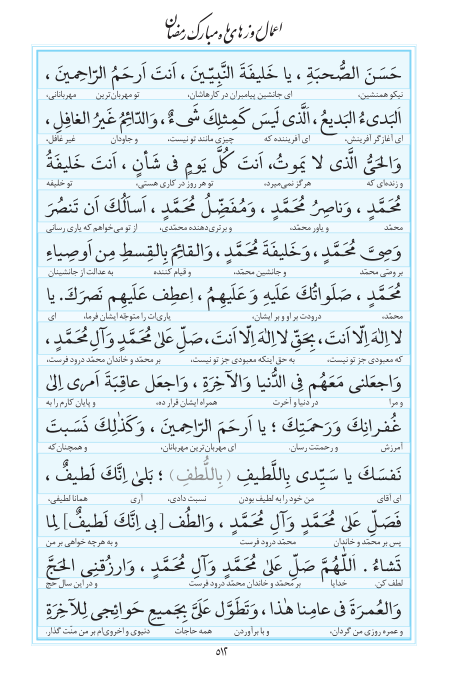 اعمال روزهای ماه مبارک رمضان
حَسَنَ الصُّحبَةِ ، یا خَلیفَةَ النَّبِیّینَ ، اَنتَ اَرحَمُ الرّاحِمینَ ،
نیکو همنشین، ای جانشین پیامبران در کارهاشان، تو مهربان‌ترین مهربانانی،
اَلبَدیءُ البَدیعُ، اَلَّذی لَیسَ کَمِثلِكَ شَیءٌ، وَالدّائِمُ غَیرُ الغافِلِ،
ای آغازگر آفرینش، ای آفریننده که چیزی مانند تو نیست، و جاودان غیر غافل،
وَالحَیُّ الَّذی لا یَموتُ، اَنتَ کُلَّ یَومٍ فی شَأنٍ ، اَنتَ خَلیفَةُ
و زنده‌ای که هرگز نمی‌میرد، تو هر روز در کاری هستی، تو خلیفه
مُحَمَّدٍ ، وَناصِرُ مُحَمَّدٍ ، وَمُفَضِّلُ مُحَمَّدٍ ، اَسأَلُكَ اَن تَنصُرَ
محمّد و یاور محمّد، و برتری‌دهنده محمّدی، از تو می‌خواهم که یاری رسانی
وَصِیَّ مُحَمَّدٍ، وَخَلیفَةَ مُحَمَّدٍ، وَالقائِمَ بِالقِسطِ مِن اَوصِیاءِ
بر وصّی محمّد و جانشین محمّد، و قیام کننده به عدالت از جانشینان
مُحَمَّدٍ ، صَلَواتُكَ عَلَیهِ وَعَلَیهِم ، اِعطِف عَلَیهِم نَصرَكَ. یا
محمّد، درودت بر او و بر ایشان، یاری‌ات را متوجّه ایشان فرما، ای
لا اِلٰهَ اِلّا اَنتَ، بِحَقِّ لا اِلٰهَ اِلّا اَنتَ، صَلِّ عَلیٰ مُحَمَّدٍ وَآلِ مُحَمَّدٍ ،
که معبودی جز تو نیست، به حق اینکه معبودی جز تو نیست، بر محمّد و خاندان محمّد درود فرست،
وَاجعَلنی مَعَهُم فِی الدُّنیا وَالآخِرَةِ ، وَاجعَل عاقِبَةَ اَمری اِلیٰ
و مرا در دنیا و آخرت همراه ایشان قرار ده، و پایان کارم را به
غُفرانِكَ وَرَحمَتِكَ ؛ یا اَرحَمَ الرّاحِمینَ ، وَکَذٰلِكَ نَسَبتَ
آمرزش و رحمتت رسان. ای مهربان‌ترین مهربانان، و همچنان‌که
نَفسَكَ یا سَیِّدی بِاللَّطیفِ (بِاللُّطفِ) ؛ بَلیٰ اِنَّكَ لَطیفٌ ،
ای آقای من خود را به لطیف بودن نسبت دادی، آری همانا لطیفی،
فَصَلِّ عَلیٰ مُحَمَّدٍ وَآلِ مُحَمَّدٍ ، وَالطُف [بی اِنَّكَ لَطیفٌ] لِما
پس بر محمّد و خاندان محمّد درود فرست و به هرچه خواهی بر من
تَشاءُ . اَللّٰهُمَّ صَلِّ عَلیٰ مُحَمَّدٍ وَآلِ مُحَمَّدٍ ، وَارزُقنِی الحَجَّ
لطف کن. خدایا بر محمّد و خاندان محمّد درود فرست و در این سال حج
وَالعُمرَةَ فی عامِنا هٰذا ، وَتَطَوَّل عَلَیَّ بِجَمیعِ حَوائِجی لِلآخِرَةِ
و عمره روزی من گردان، و با برآوردن همه حاجات دنیوی و اخروی‌ام بر من منّت گذار.
۵۱۲